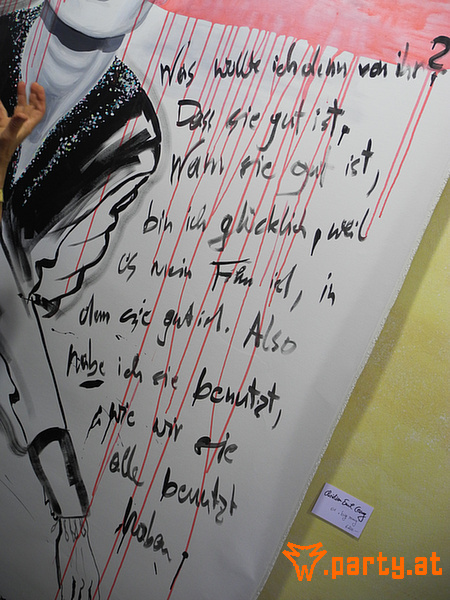 Was wollte ich denn von ihr?
Dass sie gut ist,
Wann sie gut ist,
bin ich glücklich, weil
es mein Film ist, in
dem sie gut ist. Also
habe ich sie benutzt,
wie wir sie
alle benutzt
haben!
.party.at